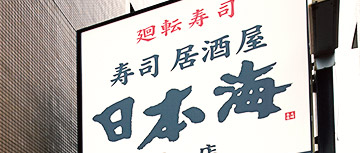 廻転寿司
寿司居酒屋
日本海
店